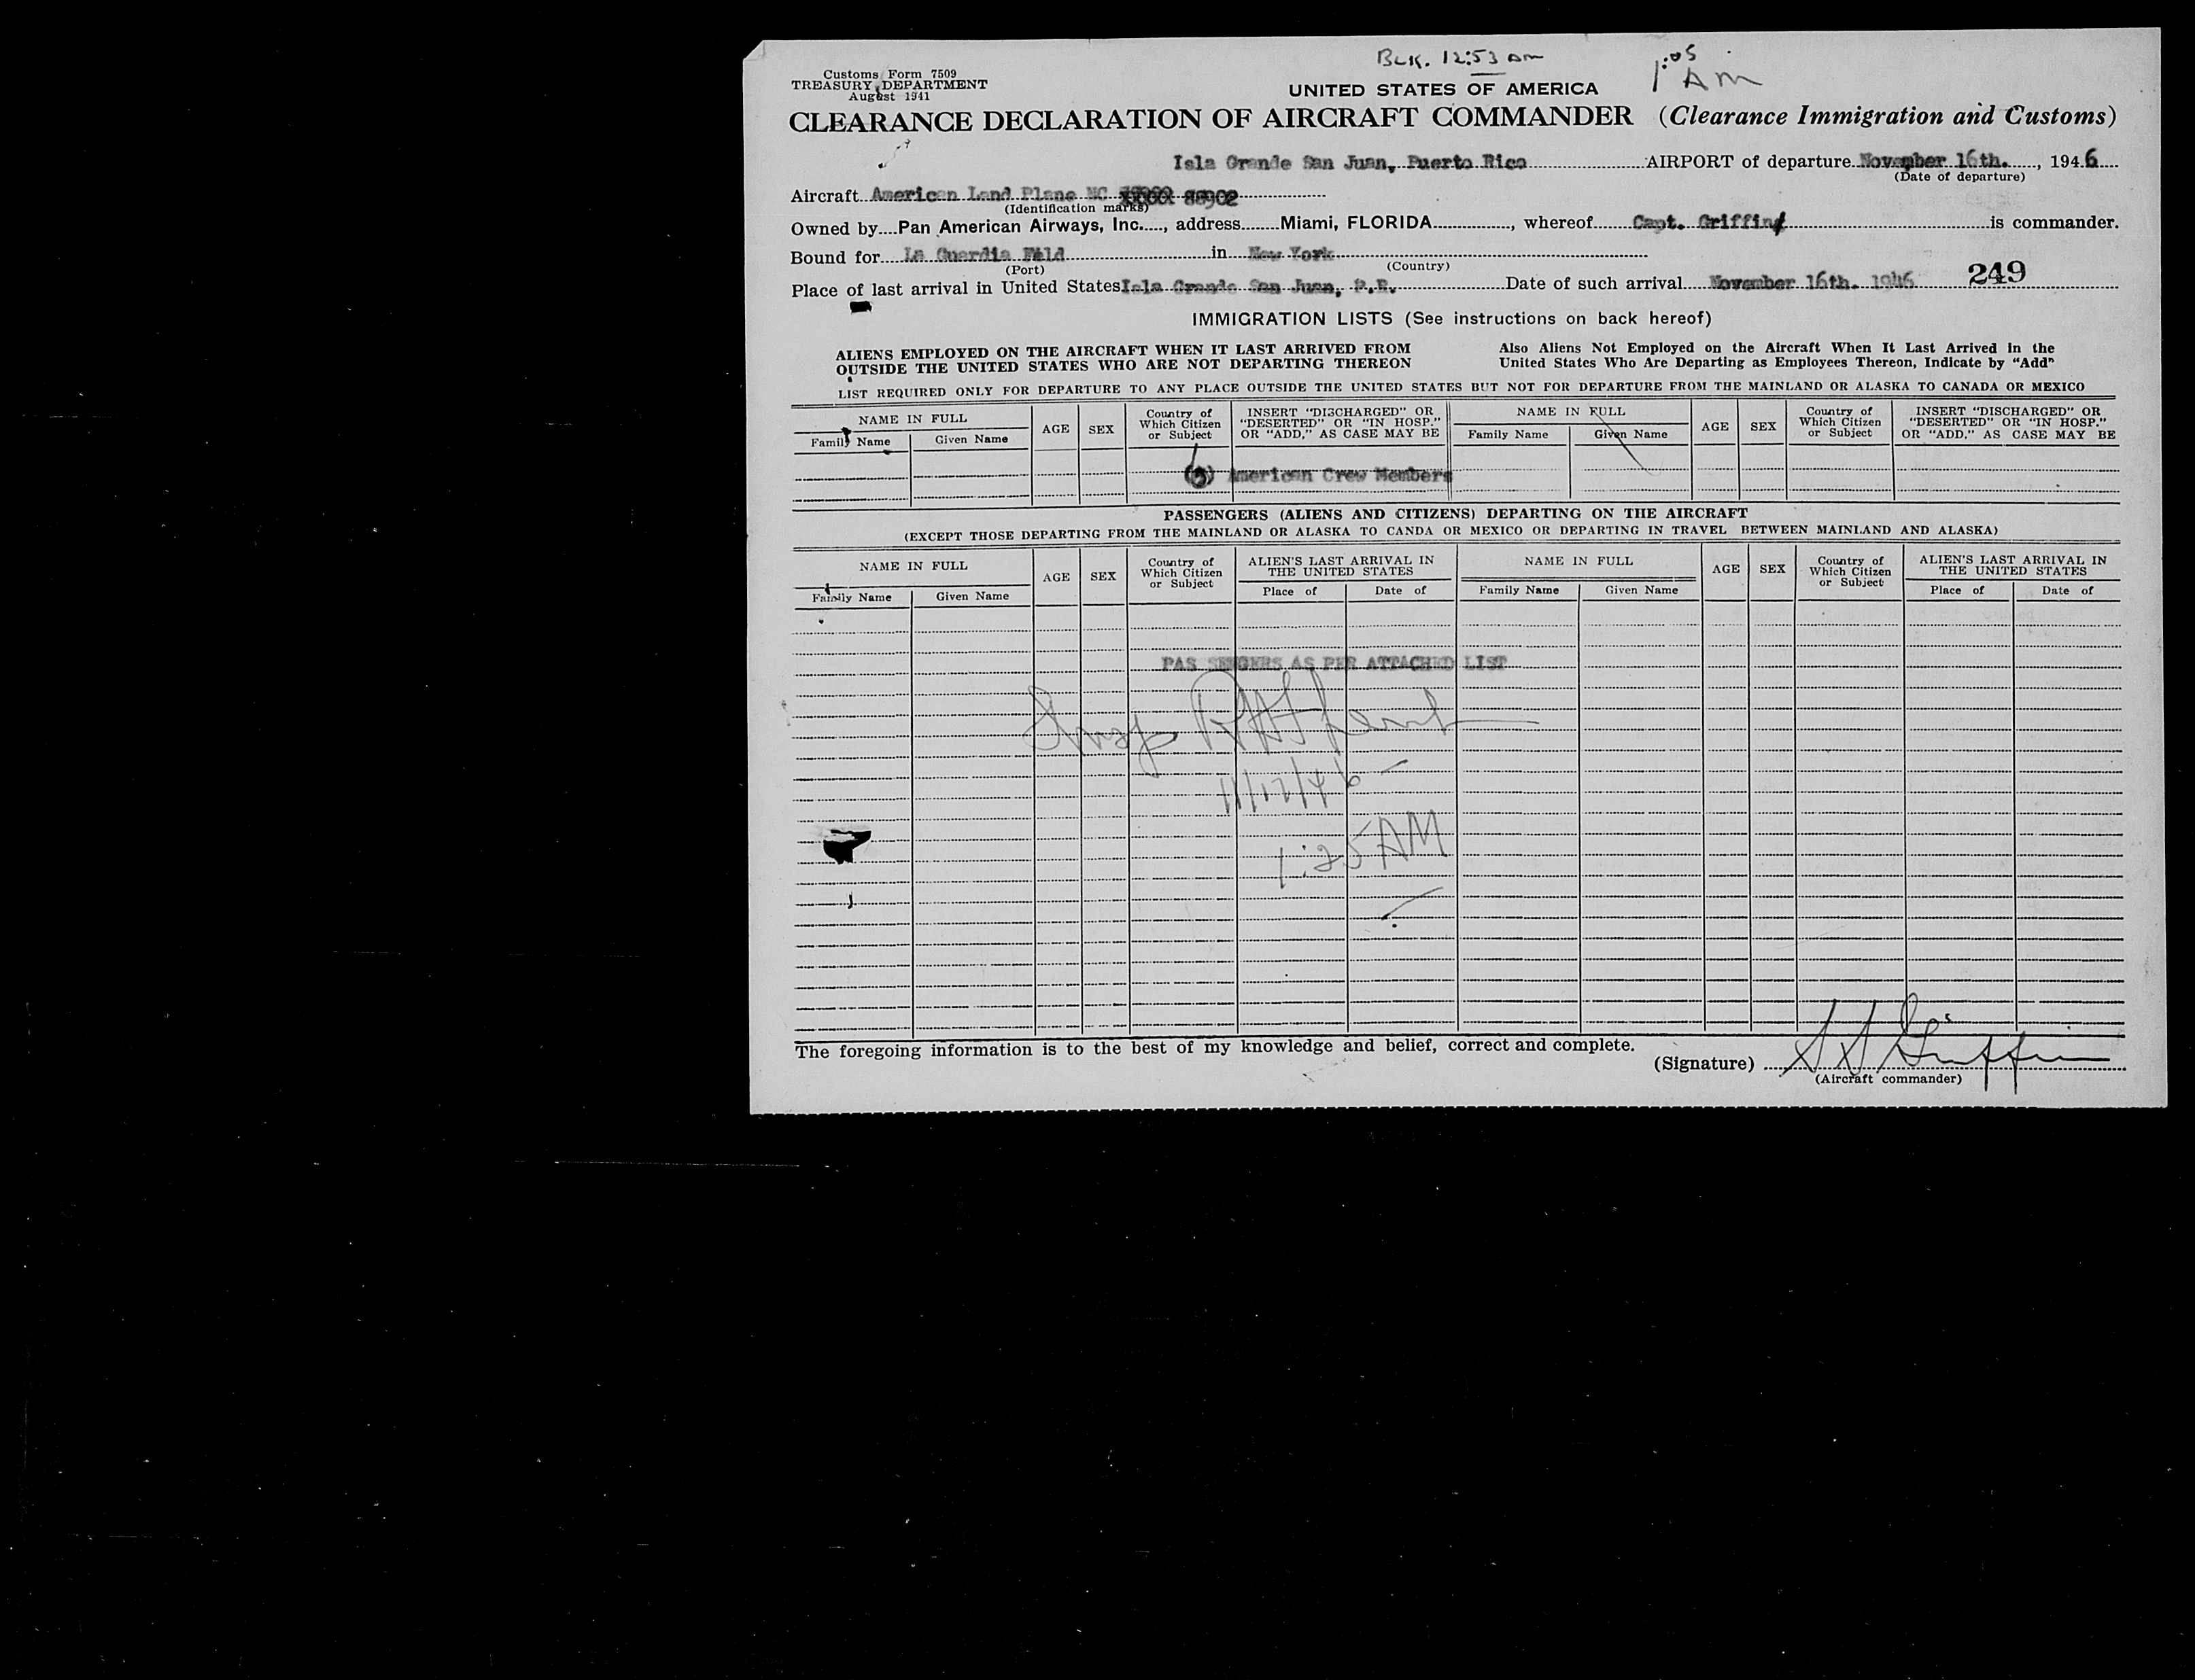 BLK. 12:53 am
1:05 AM
Customs Form 7509
TREASURY DEPARTMENT
August 1941
UNITED STATES OF AMERICA
CLEARANCE DECLARATION OF AIRCRAFT COMMANDER (Clearance Immigration and Customs)
Isla Grande San Juan, Puerto Rico AIRPORT of departure November 16th. , 1946
(Date of departure)
Aircraft American Land Plane NC 88902
(Identification marks)
Owned by Pan American Airways, Inc. , address Miami, FLORIDA , whereof Capt. Griffin is commander.
Bound for La Guardia Feld in New York
(Port) (Country)
249
Place of last arrival in United States Isla Grande San Juan, P.R. Date of such arrival November 16th. 1946
IMMIGRATION LISTS (See instructions on back hereof)
ALIENS EMPLOYED ON THE AIRCRAFT WHEN IT LAST ARRIVED FROM OUTSIDE THE UNITED STATES WHO ARE NOT DEPARTING THEREON
Also Aliens Not Employed on the Aircraft When It Last Arrived in the United States Who Are Departing as Employees Thereon, Indicate by "Add"
LIST REQUIRED ONLY FOR DEPARTURE TO ANY PLACE OUTSIDE THE UNITED STATES BUT NOT FOR DEPARTURE FROM THE MAINLAND OR ALASKA TO CANADA OR MEXICO
NAME IN FULL AGE SEX Country of Which Citizen or Subject INSERT "DISCHARGED" OR "DESERTED" OR "IN HOSP." OR "ADD," AS CASE MAY BE NAME IN FULL AGE SEX Country of Which Citizen or Subject INSERT "DISCHARGED" OR "DESERTED" OR "IN HOSP." OR "ADD," AS CASE MAY BE
Family Name Given Name Family Name Given Name
American Crew Members
PASSENGERS (ALIENS AND CITIZENS) DEPARTING ON THE AIRCRAFT
(EXCEPT THOSE DEPARTING FROM THE MAINLAND OR ALASKA TO CANDA OR MEXICO OR DEPARTING IN TRAVEL BETWEEN MAINLAND AND ALASKA)
NAME IN FULL AGE SEX Country of Which Citizen or Subject ALIEN'S LAST ARRIVAL IN THE UNITED STATES NAME IN FULL AGE SEX Country of Which Citizen or Subject ALIEN'S LAST ARRIVAL IN THE UNITED STATES
Family Name Given Name Place of Date of Family Name Given Name Place of Date of
PAS SENGERS AS PER ATTACHED LIST
Insp
1:25 AM
The foregoing information is to the best of my knowledge and belief, correct and complete.
(Signature) S S Griffin
(Aircraft commander)